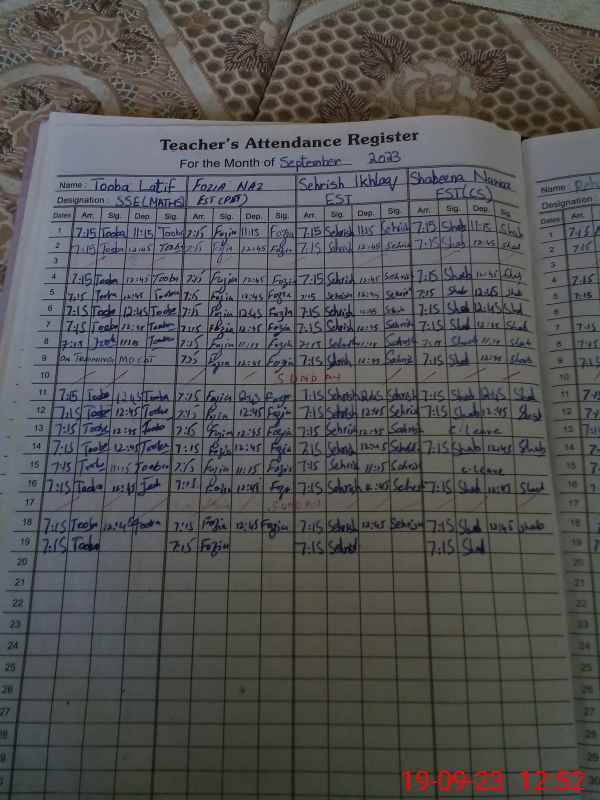 Teacher's Attendance Register
For the Month of September 2023
Name : Tooba Latif Fozia Naz Sehrish Ikhlaq Shabeena
Designation : SSE (MATHS) EST (PET) EST EST (CS)
Dates Arr. Sig. Dep. Sig. Arr. Sig. Dep. Sig. Arr. Sig. Dep. Sig. Arr. Sig. Dep. Sig.
1 7:15 Tooba 11:15 Tooba 7:15 Fozia 11:15 Fozia 7:15 Sehrish 11:15 Sehrish 7:15 Shab 11:15 Shab
2 7:15 Tooba 12:45 Tooba 7:15 Fozia 12:45 Fozia 7:15 Sehrish 12:45 Sehrish 7:15 Shab 12:45 Shab
3
4 7:15 Tooba 12:45 Tooba 7:15 Fozia 12:45 Fozia 7:15 Sehrish 12:45 Sehrish 7:15 Shab 12:45 Shab
5 7:15 Tooba 12:45 Tooba 7:15 Fozia 12:45 Fozia 7:15 Sehrish 12:45 Sehrish 7:15 Shab 12:45 Shab
6 7:15 Tooba 12:45 Tooba 7:15 Fozia 12:45 Fozia 7:15 Sehrish 12:45 Sehrish 7:15 Shab 12:45 Shab
7 7:15 Tooba 12:45 Tooba 7:15 Fozia 12:45 Fozia 7:15 Sehrish 12:45 Sehrish 7:15 Shab 12:45 Shab
8 7:15 Tooba 11:15 Tooba 7:15 Fozia 11:15 Fozia 7:15 Sehrish 11:15 Sehrish 7:15 Shab 11:15 Shab
9 On Training 7:15 Fozia 12:45 Fozia 7:15 Sehrish 12:45 Sehrish 7:15 Shab 12:45 Shab
10 SUNDAY
11 7:15 Tooba 12:45 Tooba 7:15 Fozia 12:45 Fozia 7:15 Sehrish 12:45 Sehrish 7:15 Shab 12:45 Shab
12 7:15 Tooba 12:45 Tooba 7:15 Fozia 12:45 Fozia 7:15 Sehrish 12:45 Sehrish 7:15 Shab 12:45 Shab
13 7:15 Tooba 12:45 Tooba 7:15 Fozia 12:45 Fozia 7:15 Sehrish 12:45 Sehrish C. Leave
14 7:15 Tooba 12:45 Tooba 7:15 Fozia 12:45 Fozia 7:15 Sehrish 12:45 Sehrish 7:15 Shab 12:45 Shab
15 7:15 Tooba 11:15 Tooba 7:15 Fozia 11:15 Fozia 7:15 Sehrish 11:15 Sehrish C. Leave
16 7:15 Tooba 12:45 Tooba 7:15 Fozia 12:45 Fozia 7:15 Sehrish 12:45 Sehrish 7:15 Shab 12:45 Shab
17 SUNDAY
18 7:15 Tooba 12:45 Tooba 7:15 Fozia 12:45 Fozia 7:15 Sehrish 12:45 Sehrish 7:15 Shab 12:45 Shab
19 7:15 Tooba 7:15 Fozia 7:15 Sehrish 7:15 Shab
20
21
22
23
24
25
26
27
28
19-09-23 12:52